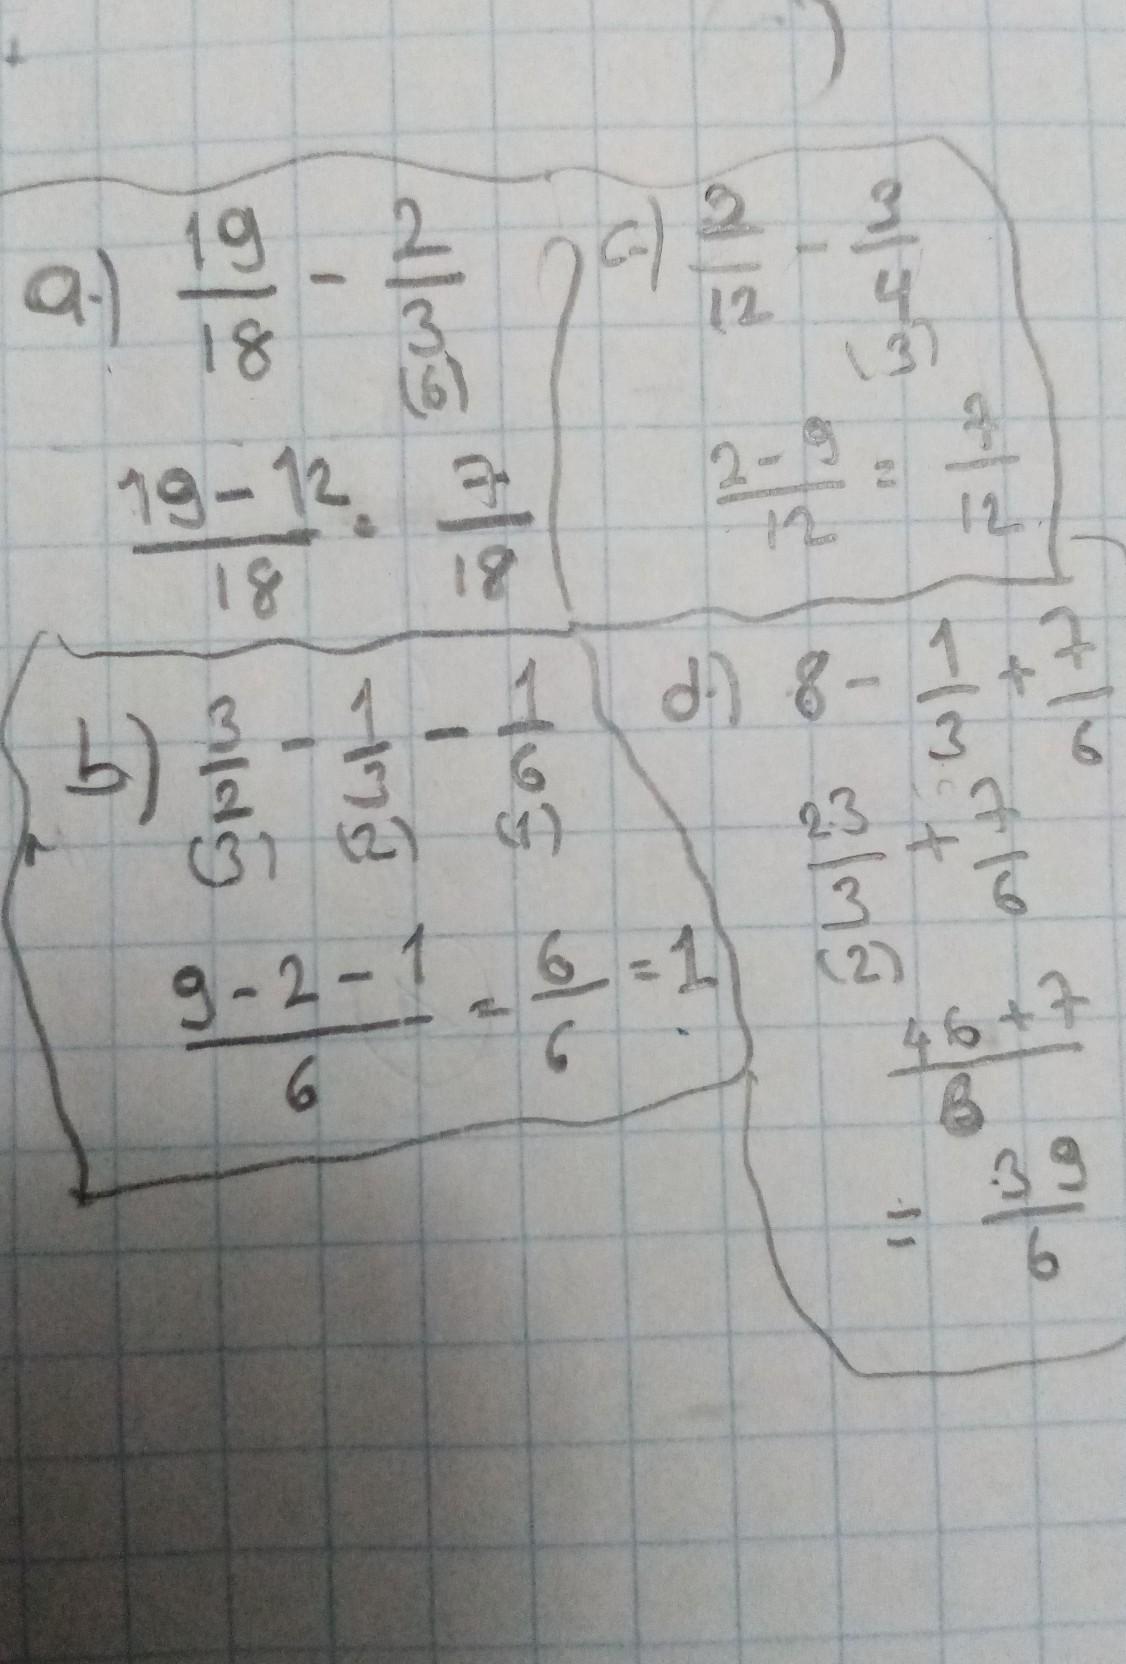 a.) 19/18 - 2/3
(6)
19-12/18 = 7/18
c.) 2/12 - 3/4
(3)
2-9/12 = 7/12
b) 3/2 - 1/3 - 1/6
(3) (2) (1)
9-2-1/6 = 6/6 = 1
d.) 8 - 1/3 + 7/6
23/3 + 7/6
(2)
46+7/6
= 39/6